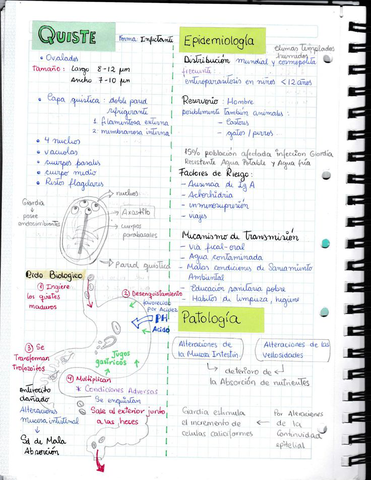 QUISTE
Forma Infectante
• Ovalado
Tamaño: Largo 8-12 µm
Ancho 7-10 µm
• Capa quistica: doble pared
refrigerante
1 filamentosa externa
2 membranosa interna
• 4 nucleos
• vacuolas
• cuerpos basales
• cuerpo medio
• Restos flagelares
nucleos
Giardia
posee
Axostilo
cuerpos
parabasales
Pared quistica
Ciclo Biologico
① Ingiere
los quistes
maduros
② Desenquistamiento
favorecido
por Acidez
PH
Acido
Jugos
gastricos
③ Se
Transforman
Trofozoitos
④ Multiplican
* Condiciones Adversas
Se enquistan
enterocito
dañado
Alteraciones
mucosa intestinal
Sale al exterior junto
a las heces
Sd de Mala
Absorción
Epidemiología
climas templados
humedos
Distribución mundial y cosmopolita
frecuente
enteroparasitosis en niños <12 años
Reservorio: Hombre
posiblemente tambien animales:
- Castores
- gatos / perros
15% población afectada infeccion Giardia
Resistente Agua Potable y Agua fria
Factores de Riesgo:
- Ausencia de Ig A
- Aclorhidria
- inmunosupresión
- viajes
Mecanismo de Transmisión
- Via fecal-oral
- Agua contaminada
- Malas condiciones de Saneamiento
Ambiental
- Educación sanitaria pobre
- Habitos de limpieza, higiene
Patología
Alteraciones de
la Mucosa Intestin
Alteraciones de las
Vellosidades
deterioro de
la Absorción de nutrientes
Giardia estimula
el incremento de
celulas caliciformes
Por Alteraciones
de la
Continuidad
epitelial